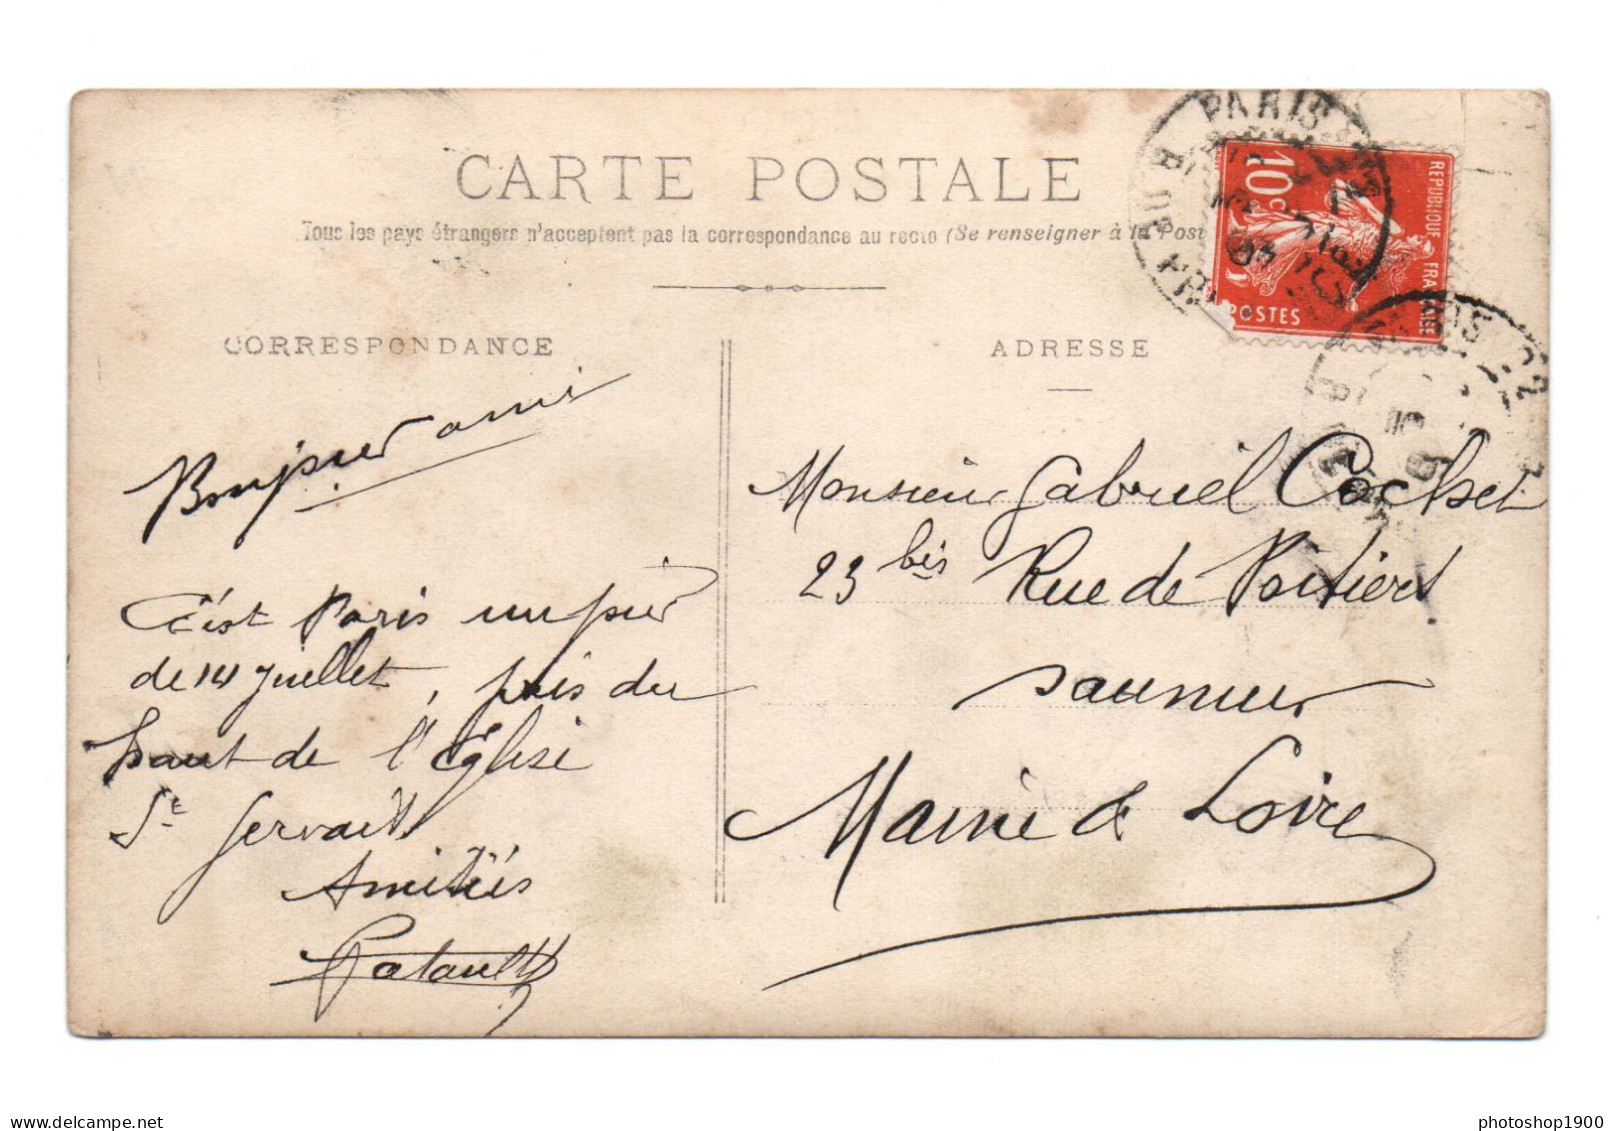 CARTE POSTALE
Tous les pays étrangers n'acceptent pas la correspondance au recto (Se renseigner à la Post
CORRESPONDANCE
ADRESSE
PARIS
10c
REPUBLIQUE FRANÇAISE
POSTES
Bonjour ami
C'est Paris un jour
de 14 Juillet, pris du
haut de l'Église
St Gervais
Amitiés
Patault
Monsieur Gabriel Cochet
23 bis Rue de Poitiers
Saumur
Maine & Loire
delcampe.net
photoshop1900